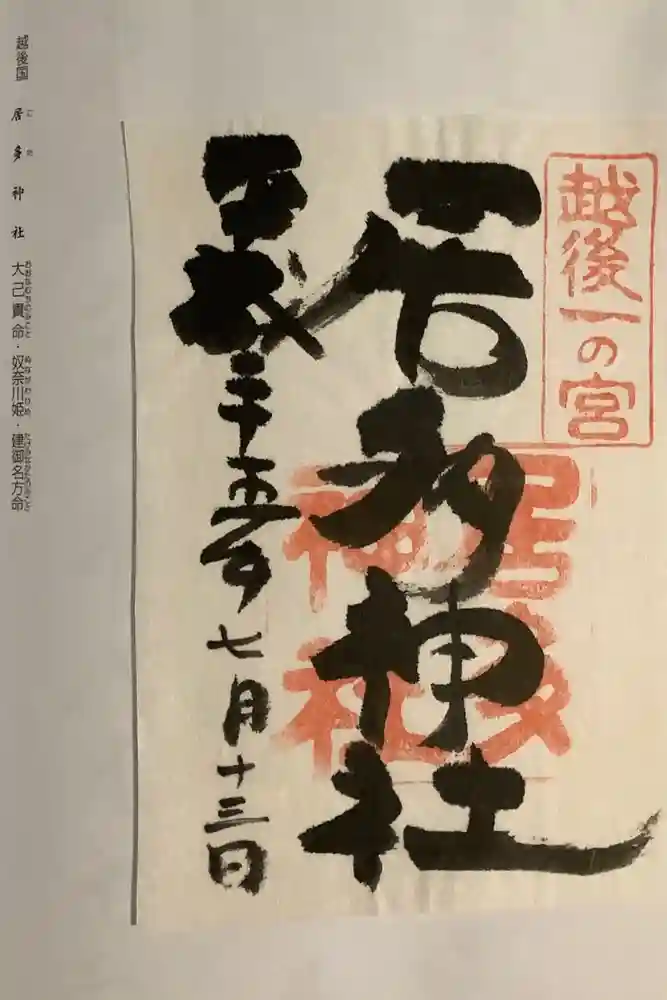 越後一の宮
居多神社
居多
神社
平成二十五年
七月十三日
越後国 居多神社 大己貴命・奴奈川姫・建御名方命